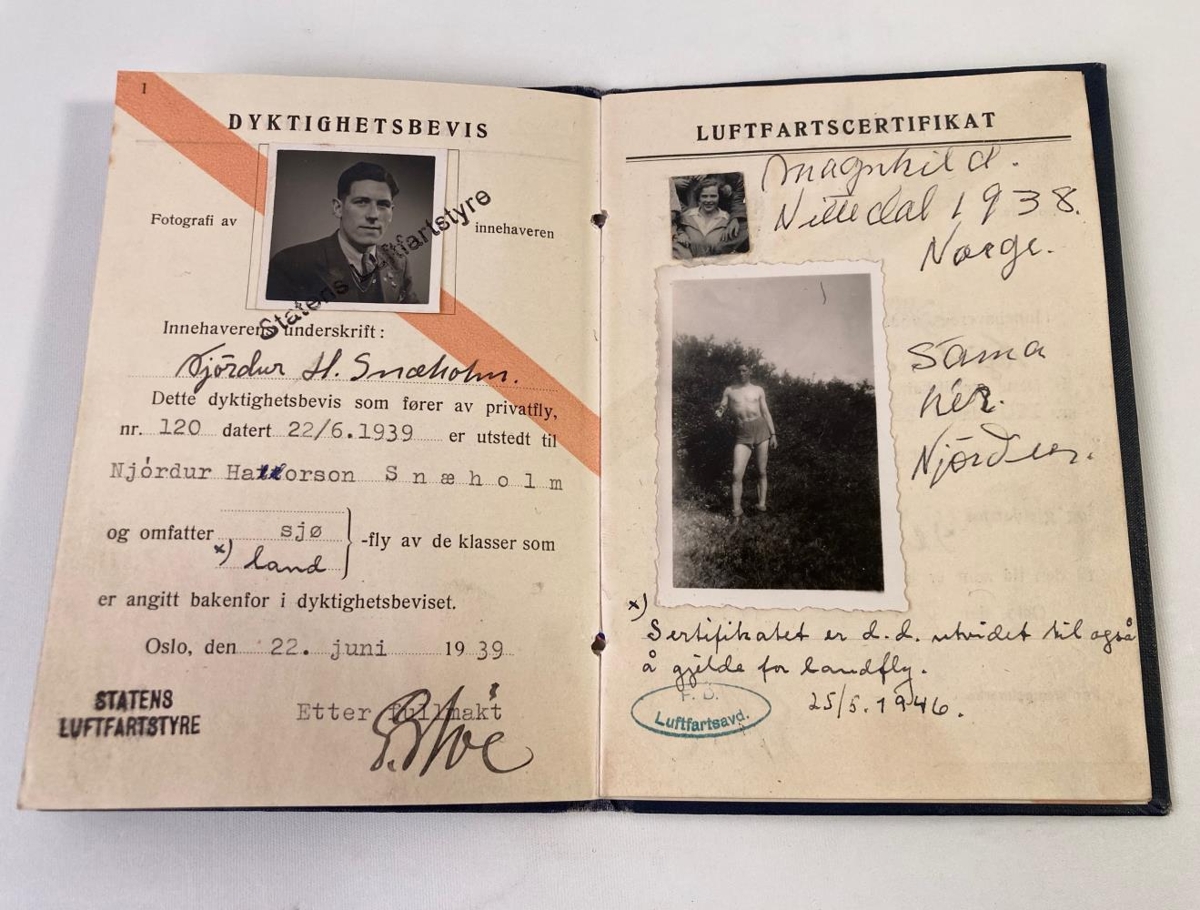 1
DYKTIGHETSBEVIS
Fotografi av
innehaveren
Statens Luftfartstyre
Innehaverens underskrift:
Njördur H. Snæholm.
Dette dyktighetsbevis som fører av privatfly,
nr. 120 datert 22/6.1939 er utstedt til
Njórdur Snæholm
og omfatter sjø -fly av de klasser som
x) land
er angitt bakenfor i dyktighetsbeviset.
Oslo, den 22. juni 1939
STATENS
LUFTFARTSTYRE
Etter fullmakt
LUFTFARTSCERTIFIKAT
Magnhild.
Nittedal 1938.
Norge.
Sama
hér.
Njördur.
x)
Sertifikatet er d.d. utvidet til også
å gjelde for landfly.
25/5.1946.
F. D.
Luftfartsavd.